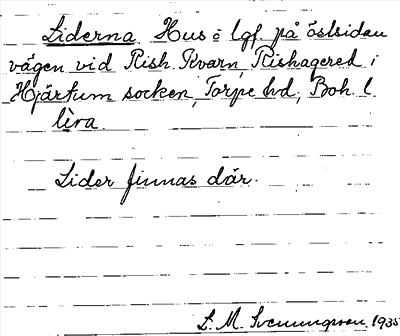 Liderna. Hus o lgf. på östsidan
vägen vid Rish. Kvarn, Rishagered i
Hjärtum socken, Torpe hd, Boh. l.
lera.
Lider finnas där.
L. M. Svenungsson. 1935